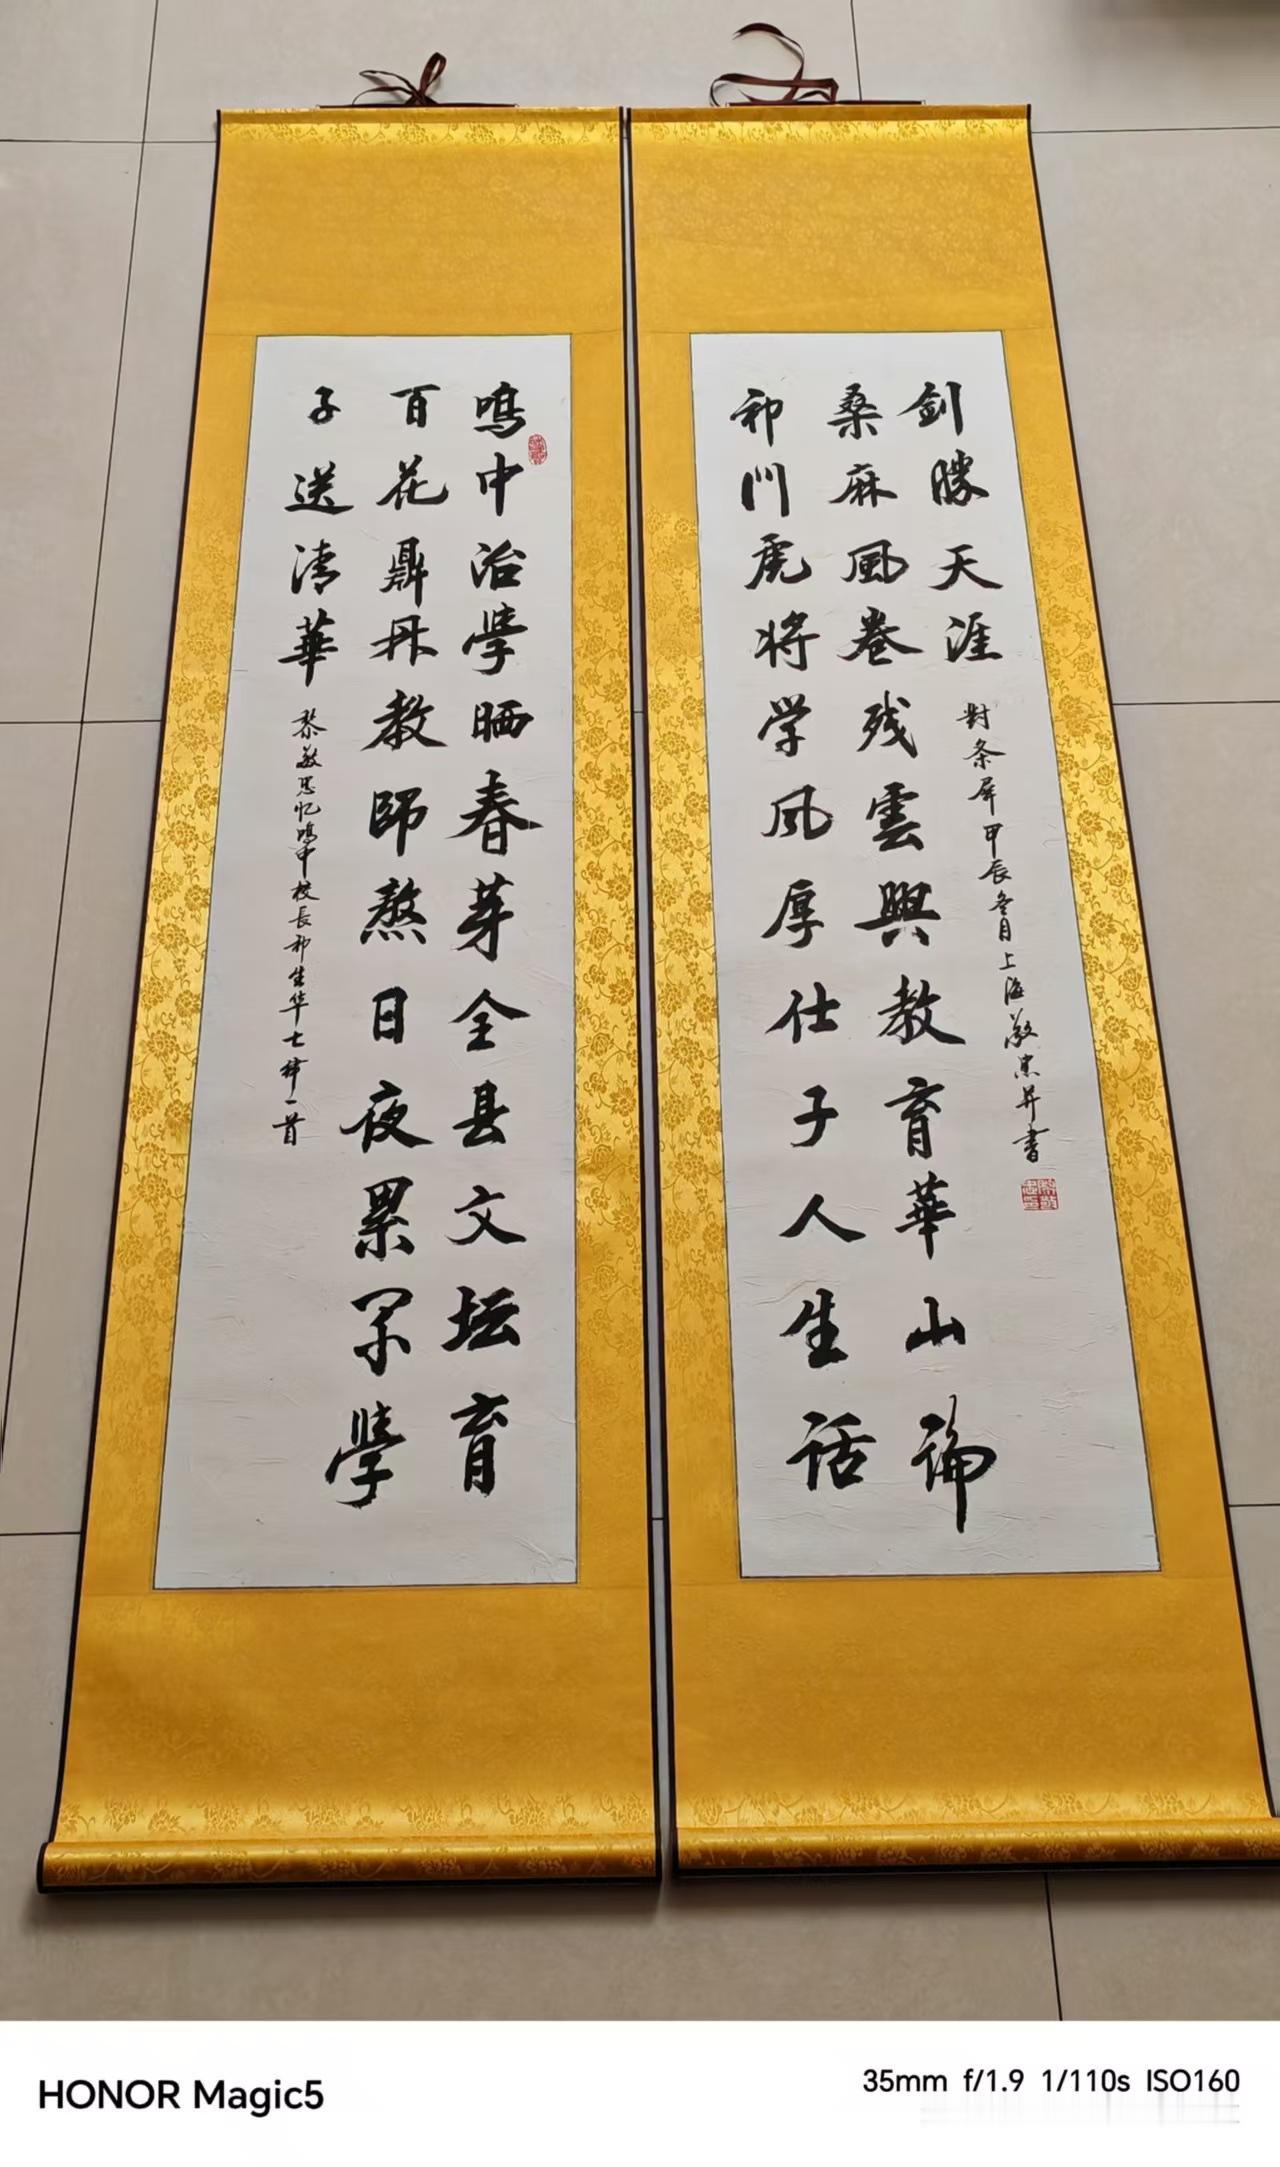 鳴中治學晒春芽全县文坛育
百花鼎丹教師熬日夜累累學
子送清華
黎敬思忆鸣中校長祁生华七律一首
祁门虎将学风厚仕子人生话
桑麻風卷残雲興教育華山論
剑勝天涯
對条屏甲辰冬月上海敬忠并書
HONOR Magic5
35mm f/1.9 1/110s ISO160